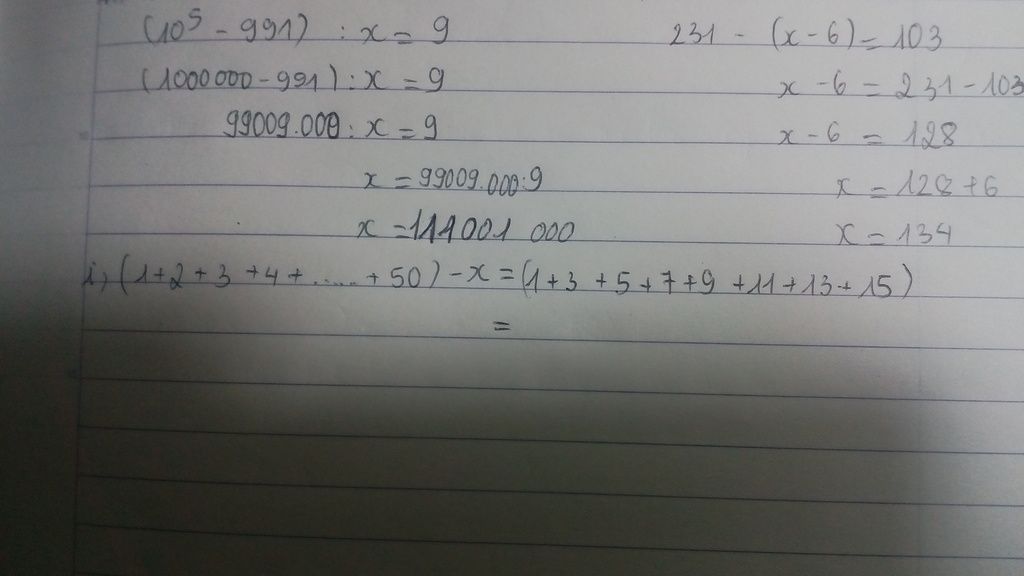 (10⁵ - 991) : x = 9
(1000000 - 991) : x = 9
99009.000 : x = 9
x = 99009.000:9
x = 111001 000
231 - (x - 6) = 103
x - 6 = 231 - 103
x - 6 = 128
x = 128 + 6
x = 134
i, (1 + 2 + 3 + 4 + ..... + 50) - x = (1 + 3 + 5 + 7 + 9 + 11 + 13 + 15)
=